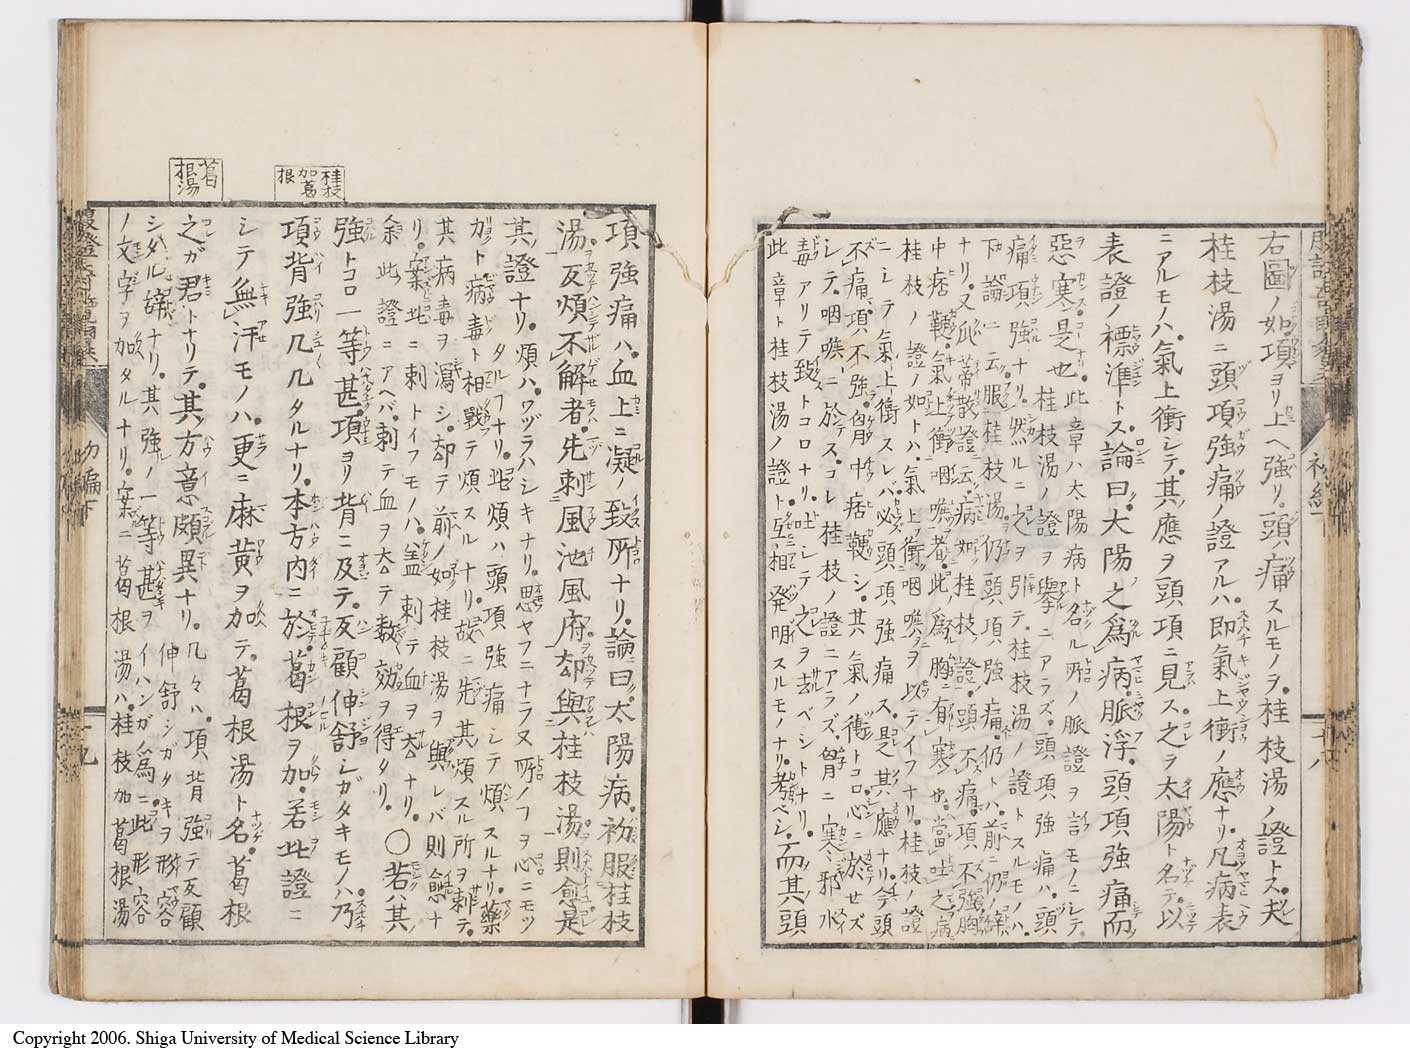 右圖ノ如項ヨリ上ヘ強リ。頭痛スルモノヲ。桂枝湯ノ證トス。夫
桂枝湯ニ頭項強痛ノ證アルハ。即氣上衝ノ應ナリ。凡病表
ニアルモノハ。氣上衝シテ。其應ヲ頭項ニ見ス之ヲ太陽ト名テ。以
表證ノ標準トス。論曰。大陽之爲病。脈浮。頭項強痛而
惡寒。是也。此章ハ太陽病ト名ル所ノ脈證ヲ
桂枝湯ノ證ヲ擧ニアラズ。頭項強痛ハ。頭
痛項強ナリ。然ルニ之ヲ引テ。桂枝湯ノ證トスルモノハ。
下論ニ云服桂枝湯。仍頭項強痛。仍トハ。前ニ仍ノ
ナリ。又瓜蒂散證云。病如桂枝證。頭不痛。項不強。胸
中痞鞕。氣上衝咽喉。者。此爲胸有寒也。當吐之。病
桂枝ノ證ノ如トハ。氣上衝咽喉ヲ以テイフナリ。桂枝ノ證
ニシテ。氣上衝スレバ必頭項強痛ス。是其應ナリ。今頭
不痛。項不強。胸中痞鞕シ。其氣ノ衝トコロ心ニ於セズ
シテ。咽喉ニ於ス。コレ桂枝ノ證ニアラズ。胃ニ寒邪水
毒アリテ致トコロナリ。吐シテ之ヲ去ベシトナリ。
此章ト桂枝湯ノ證ト。互相発明スルモノナリ。考ベシ。而其頭
十八
桂枝加葛根
葛根湯
項強痛ハ。血上ニ凝ノ致所ナリ。論曰。太陽病。初服桂枝
湯。反煩不解者。先刺風池風府。却與桂枝湯則愈是
其證ナリ。煩ハ。ワヅラハシキナリ。思ヤフニナラヌ所ノフヲ心ニモツ
ガ
タルフナリ。此煩ハ頭項強痛シテ煩スルナリ。藥
ト病毒ト相戰テ煩スルナリ。故ニ先其煩スル所ヲ刺テ。
其病毒ヲ瀉シ。却テ前ノ如桂枝湯ヲ與レバ則愈ナ
リ。案此ニ刺トイフモノハ。盖刺テ血ヲ去ナリ。
余此證ニアヘバ。刺テ血ヲ去テ數效ヲ得タリ。〇若其
強トコロ一等甚。項ヨリ背ニ及テ。反顧伸舒シガタキモノハ乃
項背強几几タルナリ。本方内ニ於葛根ヲ加。若此證ニ
シテ無汗モノハ。更ニ麻黄ヲ加テ。葛根湯ト名。葛根
之ガ君トナリテ。其方意頗異ナリ。几々ハ。項背強テ反顧
伸舒シガタキヲ形容
シタル辭ナリ。其強ノ一等甚ヲイハンガ爲ニ。此形容
ノ文字ヲ加タルナリ。案ニ葛根湯ハ。桂枝加葛根湯
十九
Copyright 2006. Shiga University of Medical Science Library